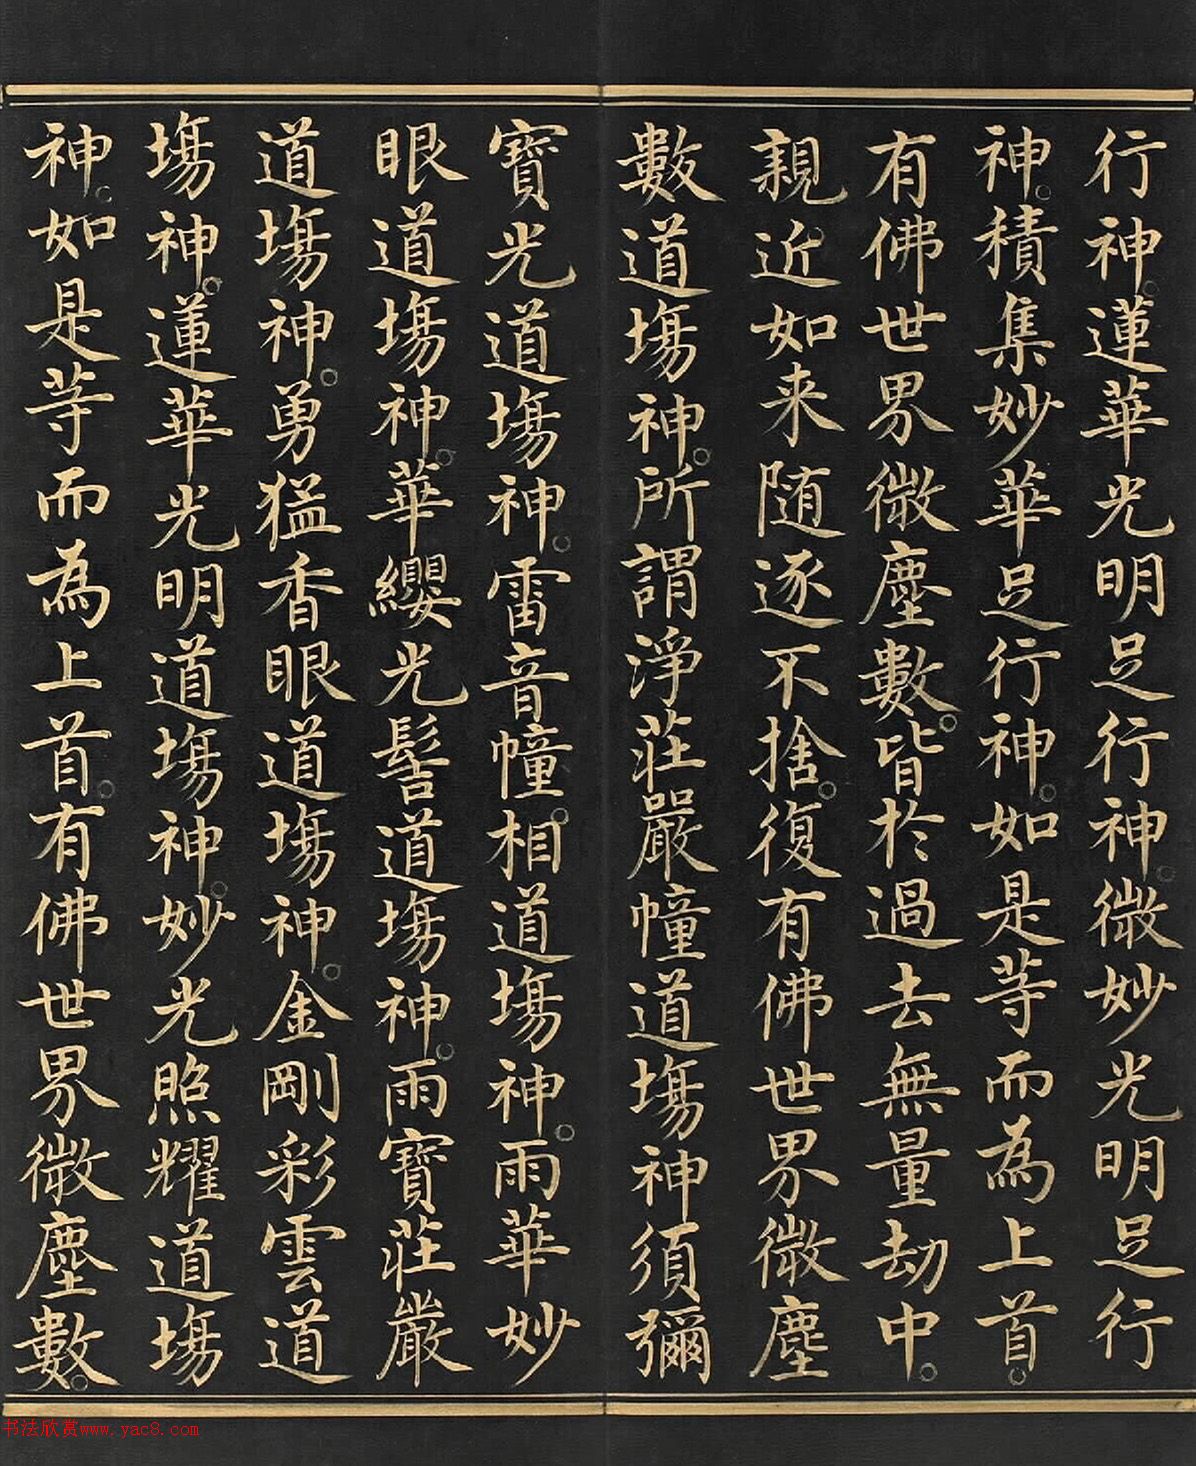 行神蓮華光明足行神微妙光明足行
神積集妙華足行神如是等而為上首
有佛世界微塵數皆於過去無量劫中
親近如来随逐不捨復有佛世界微塵
數道塲神所謂淨莊嚴幢道塲神須彌
寶光道塲神雷音幢相道塲神雨華妙
眼道塲神華纓光髻道塲神雨寶莊嚴
道塲神勇猛香眼道塲神金剛彩雲道
塲神蓮華光明道塲神妙光照耀道塲
神如是等而為上首有佛世界微塵數
书法欣赏www.yac8.com